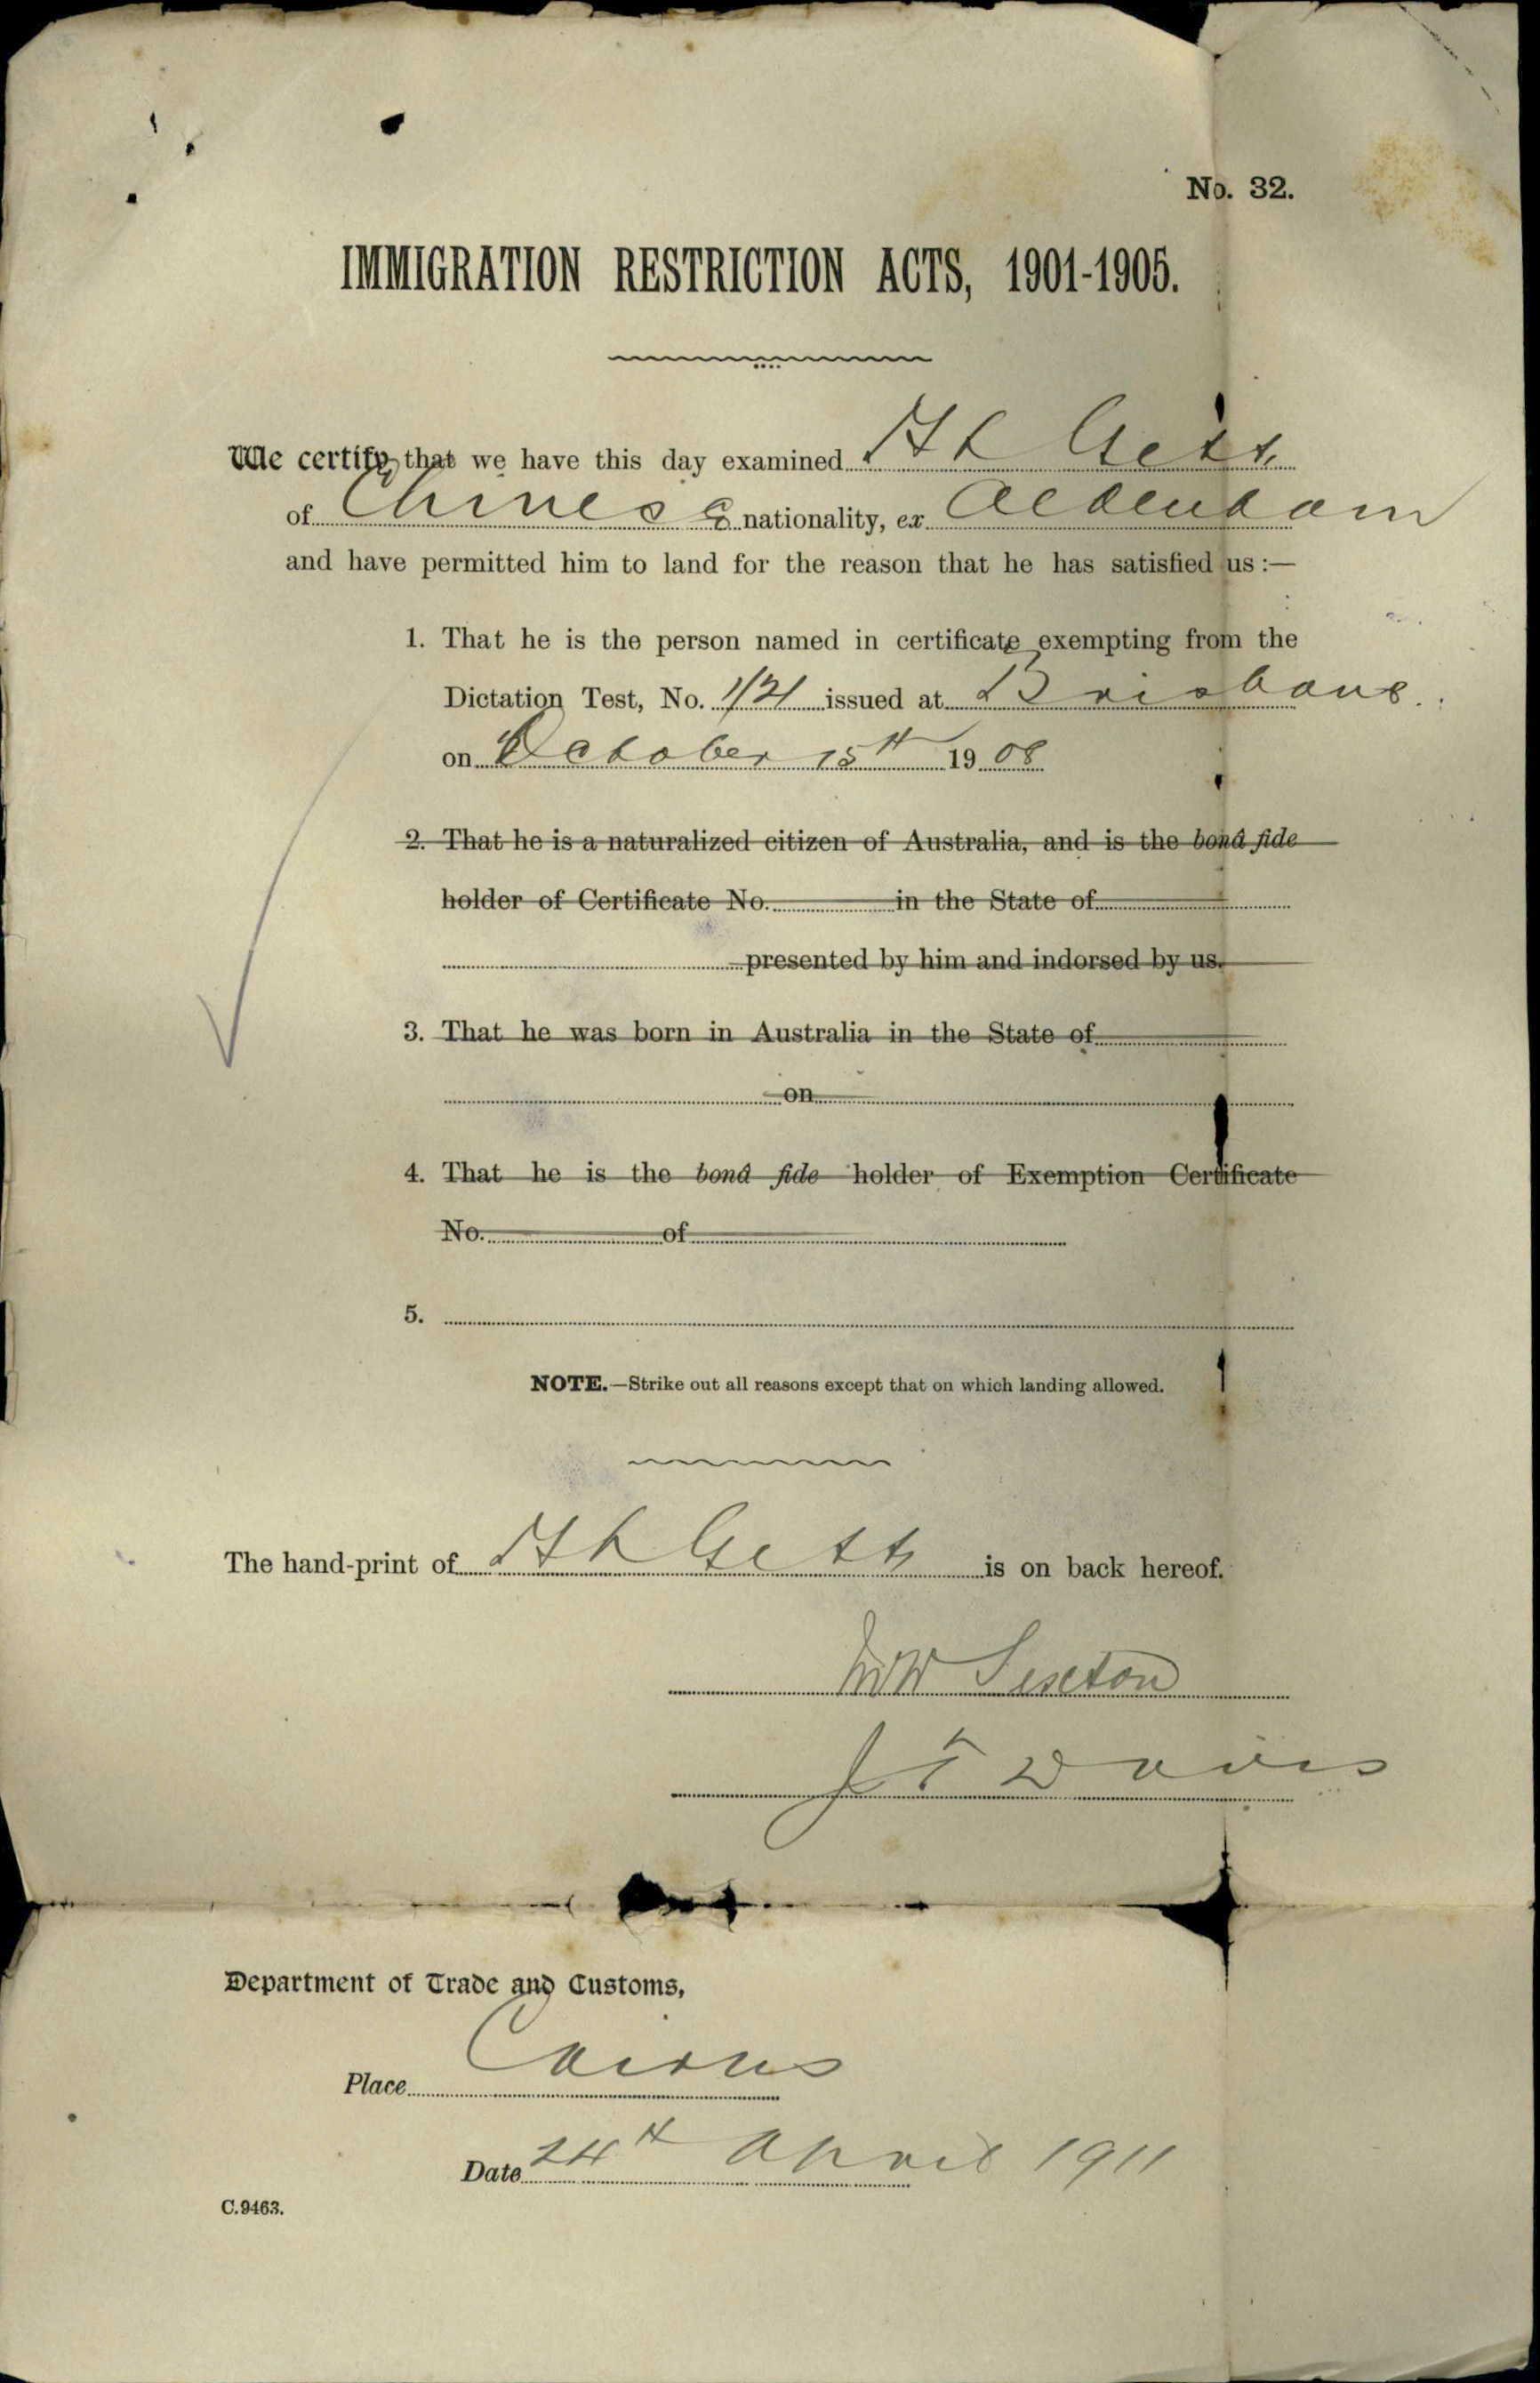 No. 32.
IMMIGRATION RESTRICTION ACTS, 1901-1905.
We certify that we have this day examined Ah Gett
of Chinese nationality, ex Aldenham
and have permitted him to land for the reason that he has satisfied us :—
1. That he is the person named in certificate exempting from the
Dictation Test, No. 1/21 issued at Brisbane
on October 15th 1908
2. That he is a naturalized citizen of Australia, and is the bonâ fide
holder of Certificate No. in the State of
presented by him and indorsed by us.
3. That he was born in Australia in the State of
on
4. That he is the bonâ fide holder of Exemption Certificate
No. of
5.
NOTE.—Strike out all reasons except that on which landing allowed.
The hand-print of Ah Gett is on back hereof.
Sexton
J T Davis
Department of Trade and Customs,
Place Cairns
Date 24th April 1911
C.9463.